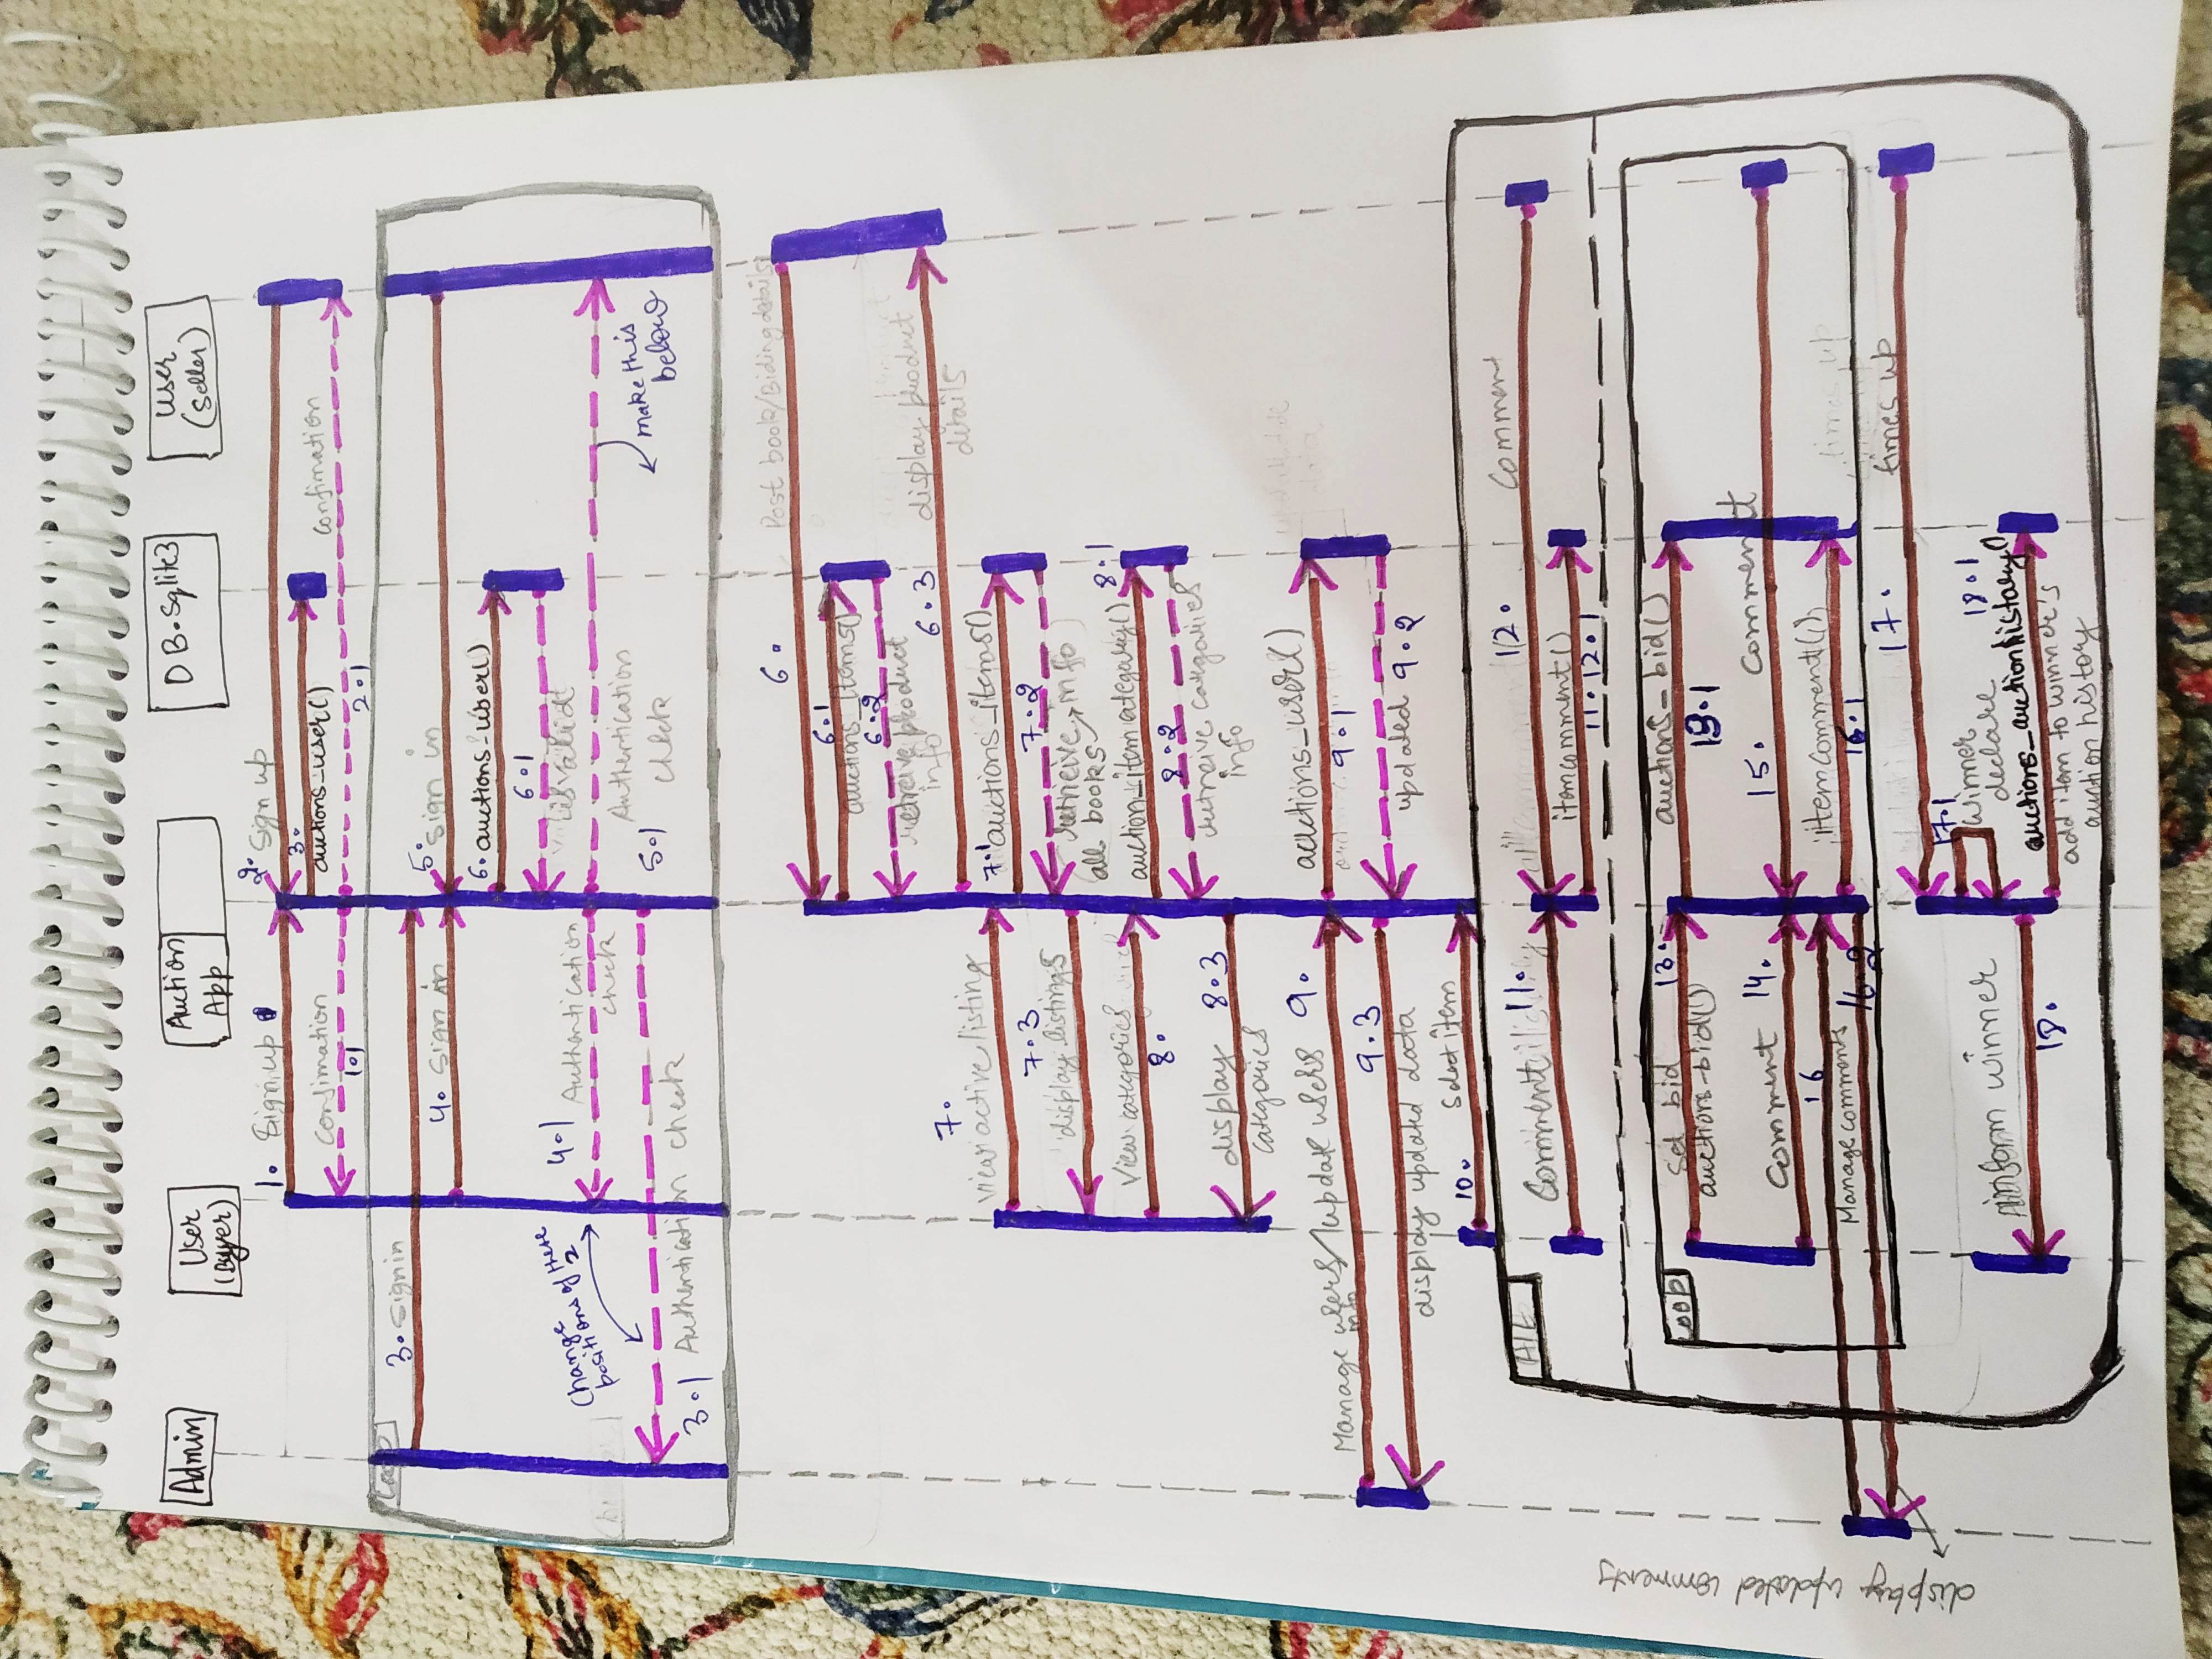 Admin
User
(Buyer)
Auction
App
DB.Sqlite3
User
(Seller)
1. Sign up
2. Sign up
3.
auctions_user()
Confimation
1.1
confimation
2.1
Loop
3. Sign in
4. Sign in
5. Sign in
6. auctions_user()
6.1
is valid
Change
positions of these
2
4.1
Authentication
check
Authentication
check
5.1
make this
below
3.1 Authentication check
6.
Post book/Biding details
6.1
auctions_items()
6.2
retreive product
info
6.3
display product
details
7.
View active listing
7.1 auctions_items()
7.3
display listings
7.2
retrieive info
all books
View categories
8.
8.1
auction_itemcategory()
8.2
retreive categories
info
display 8.3
categories
Manage users/update users 9.
info
auctions_user()
9.1
9.3
display updated data
updated 9.2
10. Select item
Alt
Comment 11.
12. Comment
itemcomment()
11.12.1
Loop
Set bid 13.
auctions_bid()
auctions_bid()
13.1
Comment 14.
15. Comment
16
Manage comments
16.2
itemcomment()
16.1
times up
display updated comments
17. times up
17.1
Winner
declare
inform winner
18.
18.1
auctions_auctionhistory()
add item to winner's
auction history